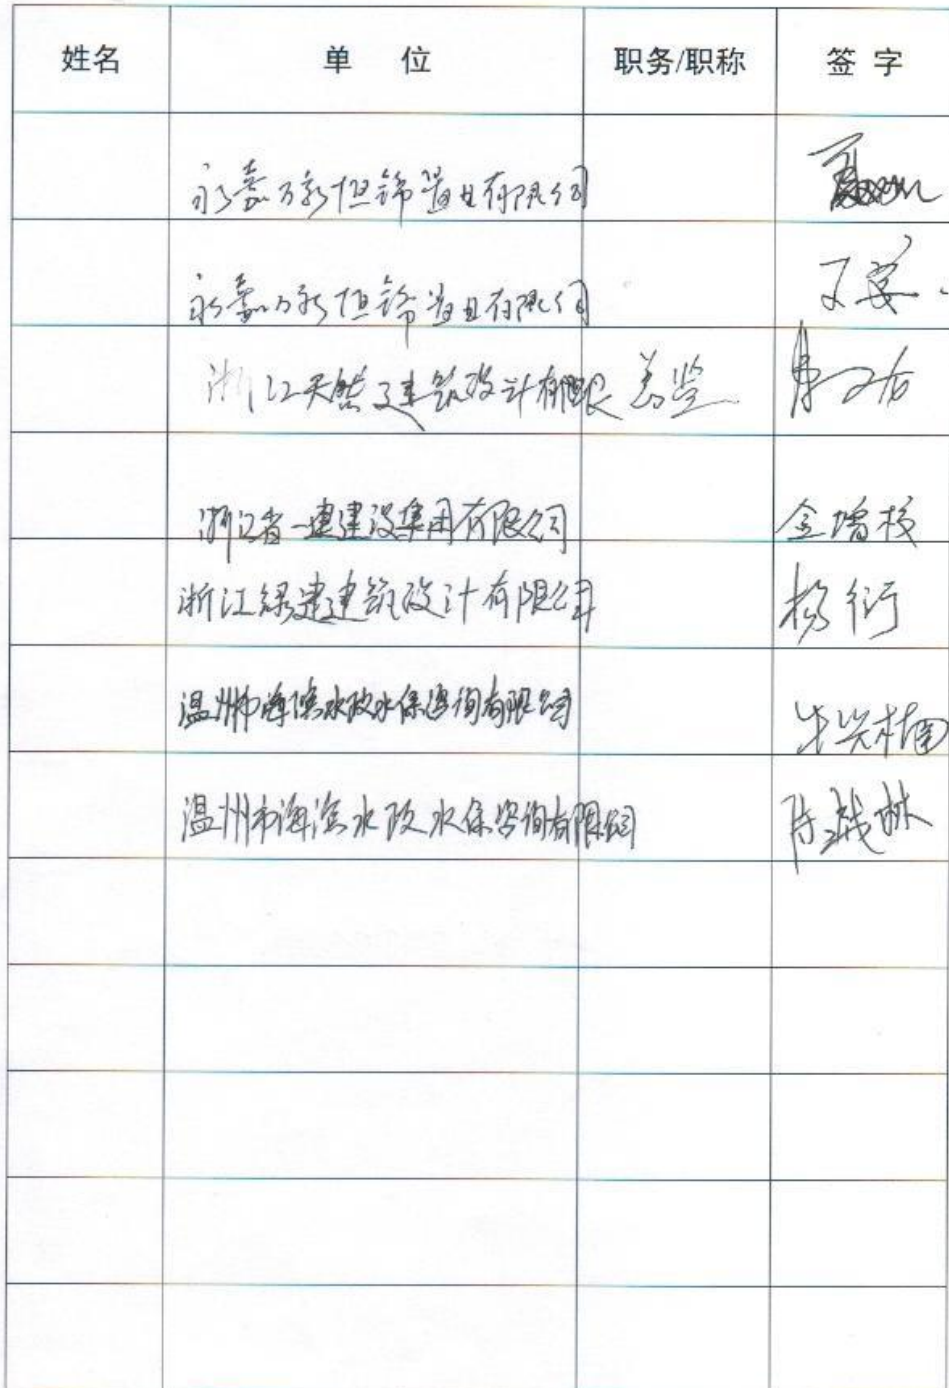 姓名 单 位 职务/职称 签 字
永嘉万新恒锦置业有限公司
永嘉万新恒锦置业有限公司
浙江天然建筑设计有限 总监
浙江省一建建设集团有限公司 金增校
浙江绿建建筑设计有限公司 杨衍
温州市海滨水政水保咨询有限公司
温州市海滨水政水保咨询有限公司 陈越琳